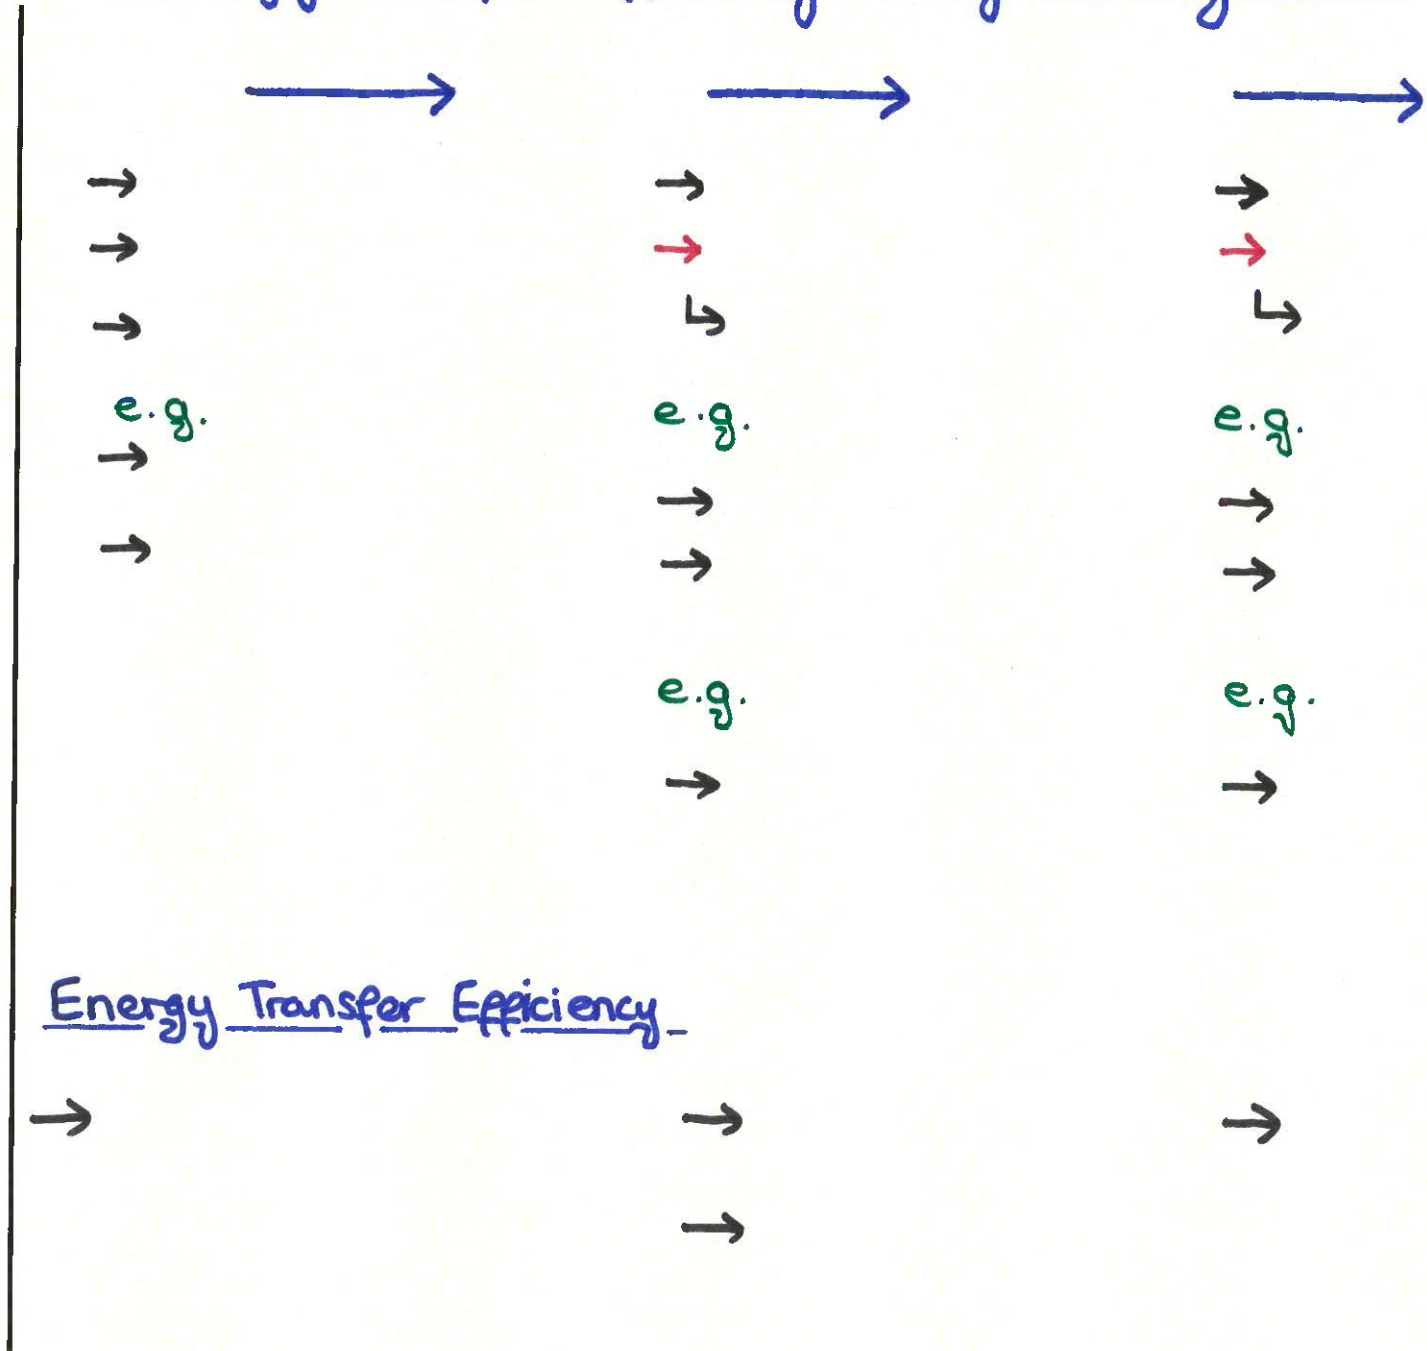 → → →
→ → →
→ → →
→ ↳ ↳
e.g. e.g. e.g.
→ → →
→ → →
e.g. e.g.
→ →
Energy Transfer Efficiency
→ → →
→